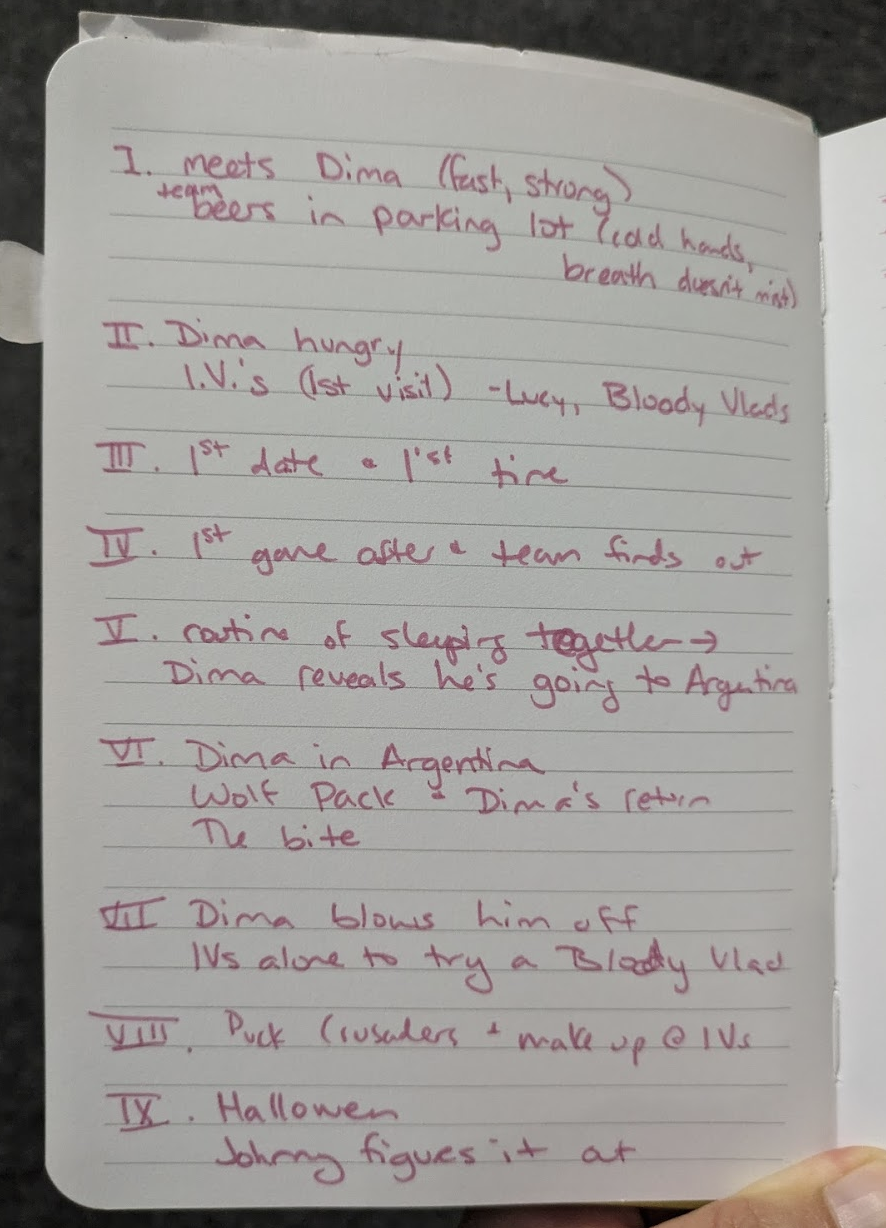 I. meets Dima (fast, strong)
team
beers in parking lot (cold hands,
breath doesn't mist)
II. Dima hungry
I.V.'s (1st visit) - Lucy, Bloody Vlads
III. 1st date + 1'st time
IV. 1st game after + team finds out
V. routine of sleeping together →
Dima reveals he's going to Argentina
VI. Dima in Argentina
Wolf Pack + Dima's return
The bite
VII Dima blows him off
IVs alone to try a Bloody Vlad
VIII. Puck Crusaders + make up @ IVs
IX. Hallowen
Johnny figues it out